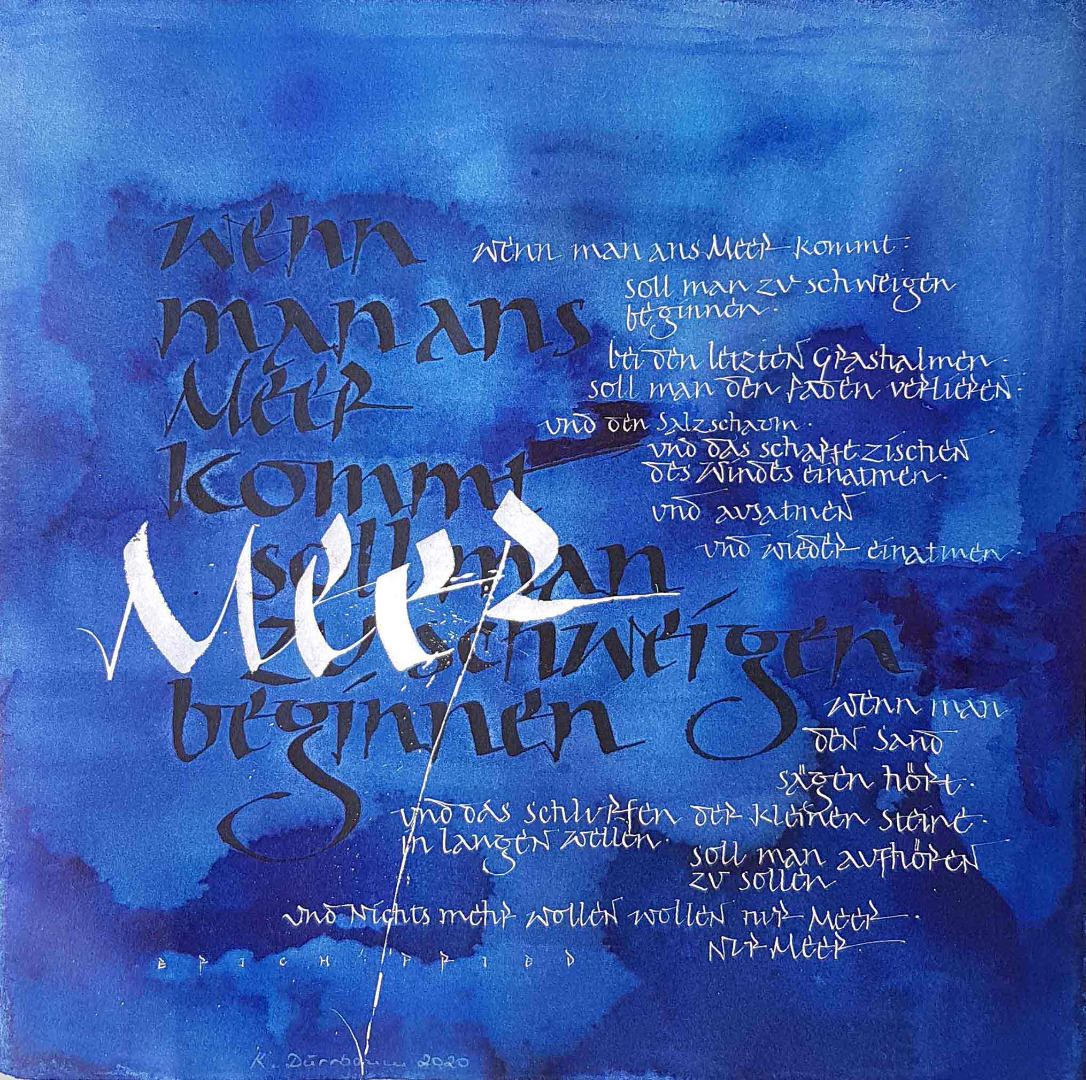 wenn
man ans
Meer
kommt
soll man
zu schweigen
beginnen
Meer
wenn man ans Meer kommt
soll man zu schweigen
beginnen
bei den letzten Grashalmen
soll man den Faden verlieren
und den Salzschaum
und das scharfe zischen
des Windes einatmen
und ausatmen
und wieder einatmen
wenn man
den Sand
sägen hört
und das Schlurfen der kleinen Steine
in langen Wellen
soll man aufhören
zu sollen
und Nichts mehr wollen wollen nur Meer
Nur Meer
ERICH FRIED
K. Dürrbaum 2020